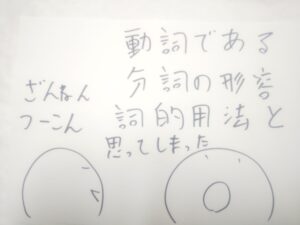 動詞である
分詞の形容
詞的用法と
思ってしまった
ざんねん
つーこん